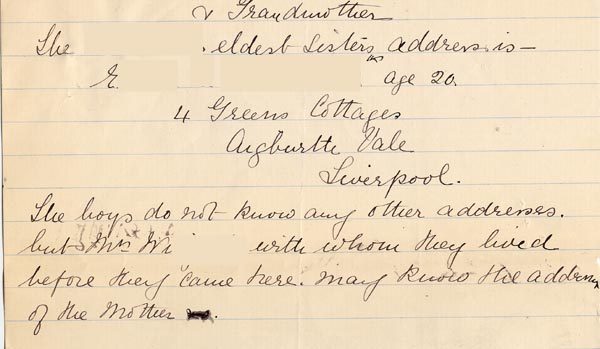 & Grandmother
The eldest Sisters address is—
E. age 20.
4 Greens Cottages
Aigburth Vale
Liverpool.
The boys do not know any other addresses.
but Mrs Wi with whom they lived
before they came here. may know the address
of the Mother